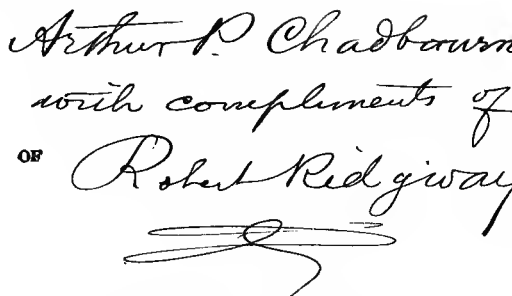 Arthur P. Chadbourn
with compliments of
OF Robert Ridgway